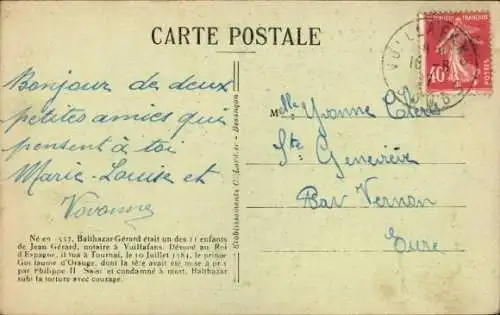 CARTE POSTALE
Bonjour de deux
petites amies qui
pensent à toi
Marie-Louise et
Né en 1557, Balthazar-Gérard était un des 11 enfants
de Jean Gérard, notaire à Vuillafans. Dévoué au Roi
d'Espagne, il tua à Tournai, le 10 Juillet 1584, le prince
Guillaume d'Orange, dont la tête avait été mise à prix
par Philippe II. Saisi et condamné à mort, Balthazar
subi la torture avec courage.
Etablissements C. Besançon
Melle Yvonne
Ste Geneviève
Par Vernon
Eure
POSTES
40c